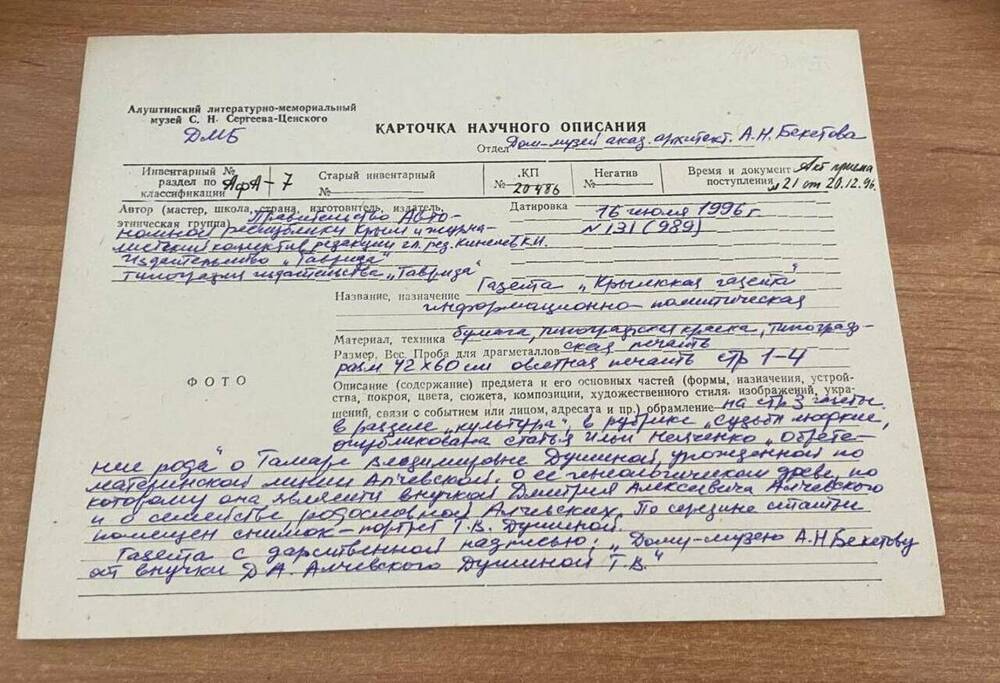 Алуштинский литературно-мемориальный
музей С. Н. Сергеева-Ценского
ДМБ
КАРТОЧКА НАУЧНОГО ОПИСАНИЯ
Отдел Дом-музей акад. архитект. А.Н. Бекетова
Инвентарный № раздел по классификации АфА-7
Старый инвентарный №
КП № 20486
Негатив №
Время и документ поступления Акт приема №21 от 20.12.96.
Автор (мастер, школа, страна, изготовитель, издатель,
этническая группа) Правительство Авто-
номной республики Крым и журна-
листский коллектив редакции гл. ред.
Издательство „Таврида"
типография издательства „Таврида"
Датировка 16 июля 1996 г
N 131 (989)
Название, назначение Газета „Крымская газета"
информационно-политическая
Материал, техника бумага, типографская краска, типограф-
Размер, Вес. Проба для драгметаллов ская печать
разм 42х60 см печать стр 1-4
ФОТО
Описание (содержание) предмета и его основных частей (формы, назначения, устрой-
ства, покроя, цвета, сюжета, композиции, художественного стиля, изображений, укра-
шений, связи с событием или лицом, адресата и пр.) обрамление на стр 3 газеты
в разделе „культура", в рубрике „судьбы людские,
опубликована статья Ильи „Обрете-
ние рода" о Тамаре Владимировне Душиной, урожденной по
материнской линии Алчевской, о ее генеологическом древе, по
которому она является внучкой Дмитрия Алексеевича Алчевского
и о семействе, родословной Алчевских. По середине статьи
помещен снимок-портрет Т.В. Душиной.
Газета с дарственной надписью: „Дому-музею А.Н Бекетову
от внучки Д.А. Алчевского Душиной Т.В."